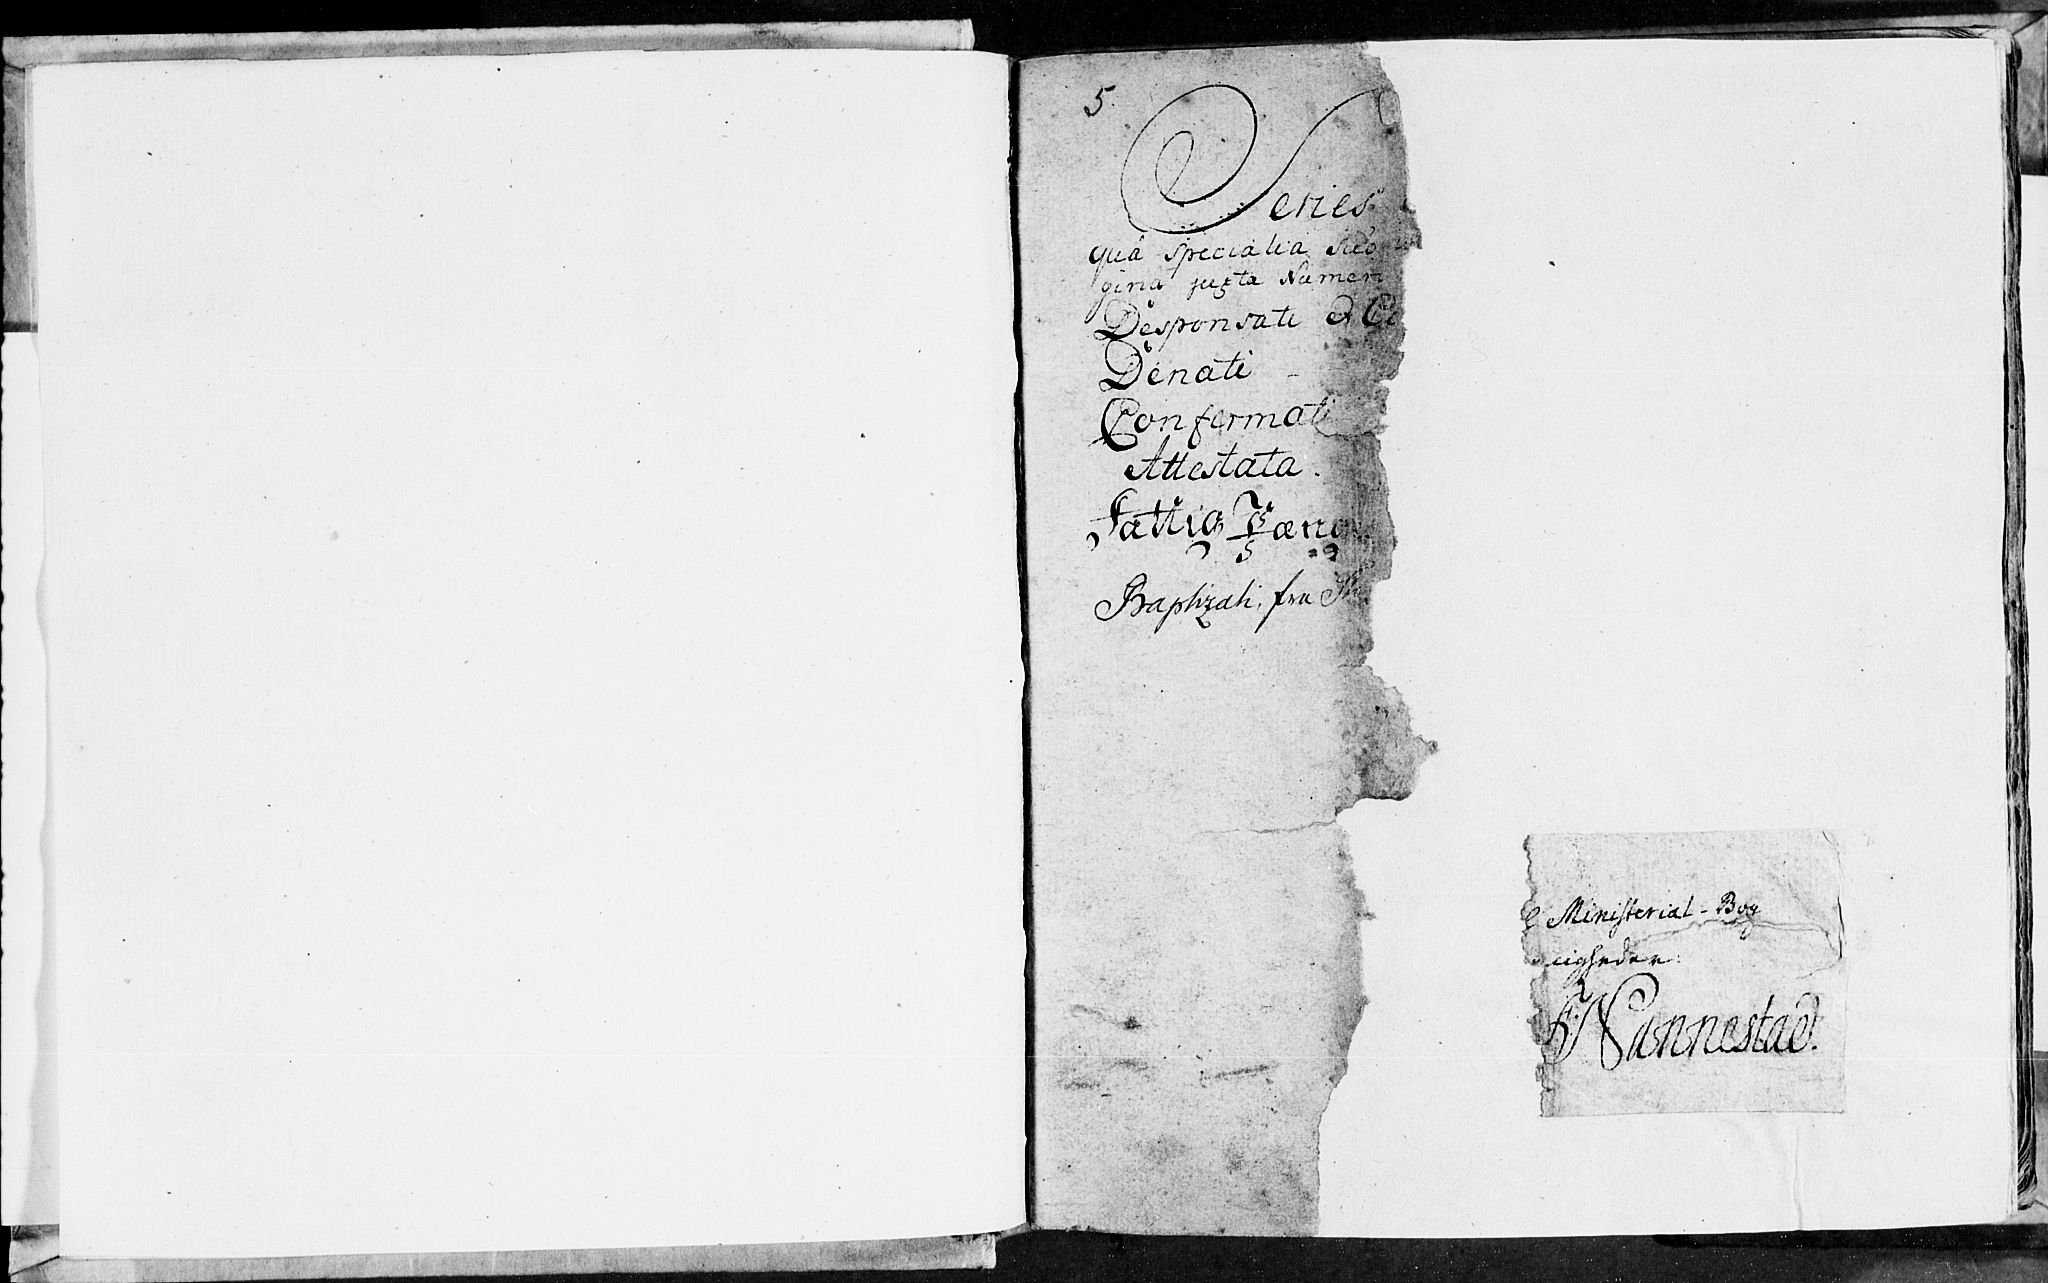 5.
Series
quâ specialia suo
gina juxta Numeri
Desponsati & Co
Denati
Confermati
Attestata.
Fattig Pænge
Baptizati, fra
Ministerial-Bog
igheder.
Nannestad.